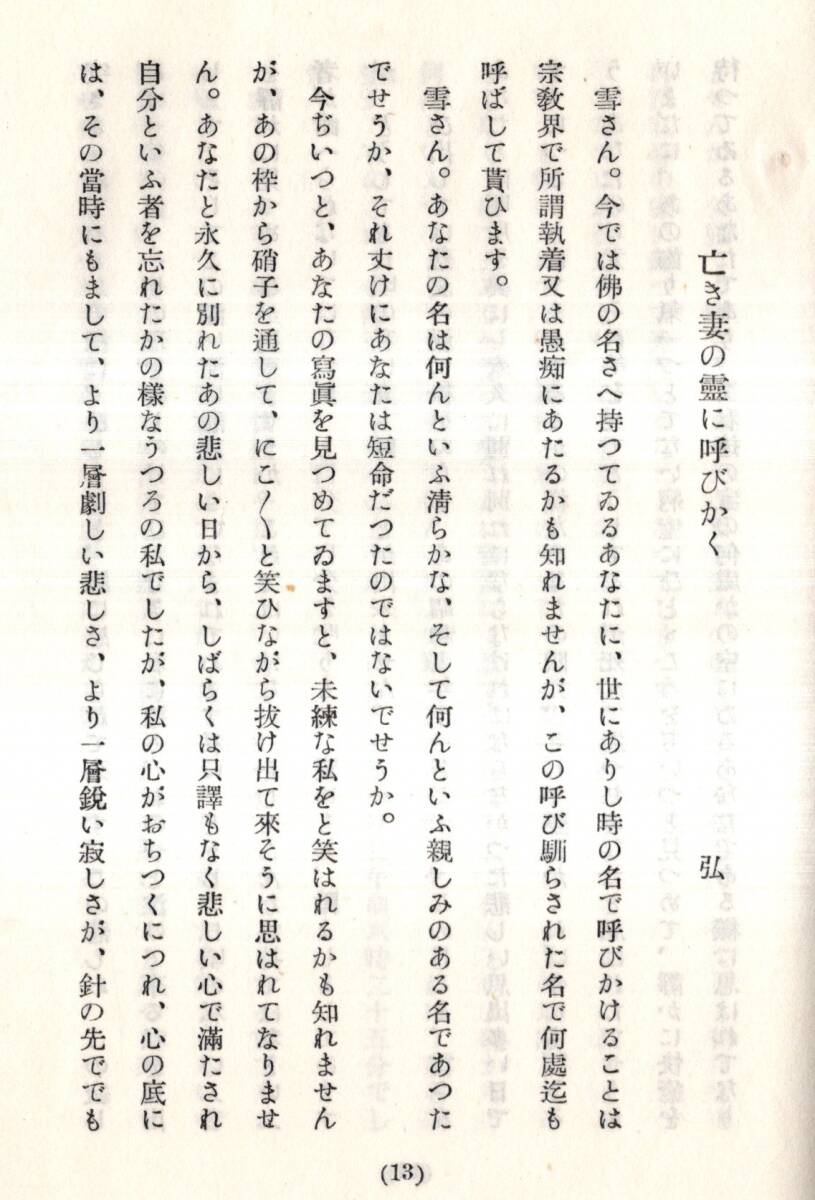 亡き妻の靈に呼びかく　弘
雪さん。今では佛の名さへ持つてゐるあなたに、世にありし時の名で呼びかけることは
宗敎界で所謂執着又は愚痴にあたるかも知れませんが、この呼び馴らされた名で何處迄も
呼ばして貰ひます。
雪さん。あなたの名は何んといふ淸らかな、そして何んといふ親しみのある名であつた
でせうか、それ丈けにあなたは短命だつたのではないでせうか。
今ぢいつと、あなたの寫眞を見つめてゐますと、未練な私をと笑はれるかも知れません
が、あの枠から硝子を通して、にこ〳〵と笑ひながら拔け出て來そうに思はれてなりませ
ん。あなたと永久に別れたあの悲しい日から、しばらくは只譯もなく悲しい心で滿たされ
自分といふ者を忘れたかの樣なうつろの私でしたが、私の心がおちつくにつれ、心の底に
は、その當時にもまして、より一層劇しい悲しさ、より一層銳い寂しさが、針の先ででも
(13)